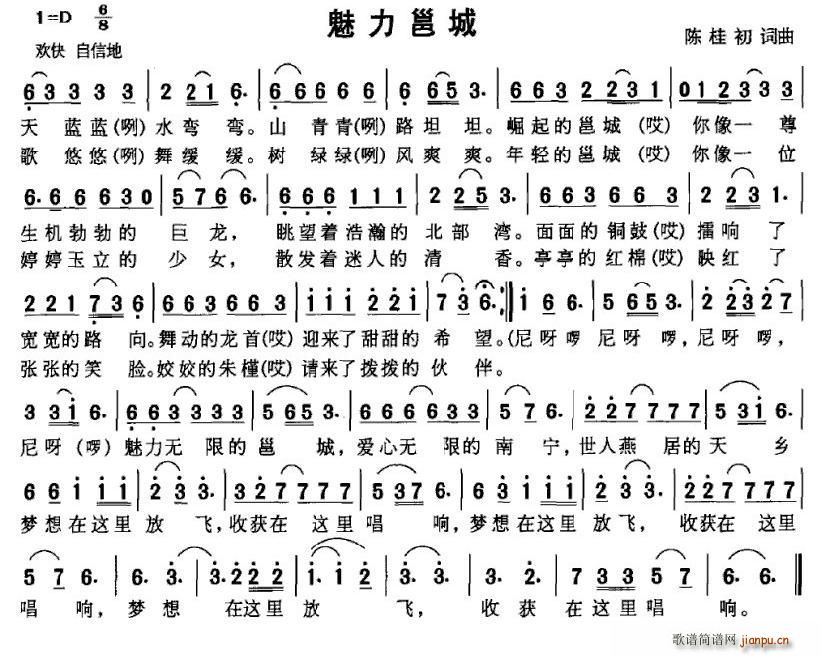 魅力邕城
1=D 6/8
欢快 自信地
陈桂初 词曲
6 3 3 3 3 | 2 2 2 1 6· | 6 6 6 6 6 6 | 6 6 5 3· | 6 6 3 2 2 3 1 | 0 1 2 3 3 3 |
天 蓝蓝(咧)水弯 弯。山 青青(咧)路坦 坦。崛起的邕城 (哎) 你像一 尊
歌 悠悠(咧)舞缓 缓。树 绿绿(咧)风爽 爽。年轻的邕城 (哎) 你像一 位
6· 6 6 6 3 0 | 5 7 6 6· | 6 6 6 1 1 1 | 2 2 5 3· | 6 6 3 6 6 3 | 2 2 3 1· |
生机勃勃的 巨 龙， 眺望着浩瀚的 北 部 湾。面面的铜鼓(哎) 擂响 了
婷婷玉立的 少 女， 散发着迷人的 清 香。亭亭的红棉(哎) 映红 了
2 2 1 7 3 6 | 6 6 3 6 6 3 | 1 1 1 2 2 1 | 7 3 6· :| 1 6 6· | 5 6 5 3· | 2 2 3 2 7 |
宽宽的路 向。舞动的龙首(哎) 迎来了甜甜的 希 望。(尼呀啰 尼呀 啰，尼呀 啰，
张张的笑 脸。姣姣的朱槿(哎) 请来了拨拨的 伙 伴。
3 3 1 6· | 6 6 3 3 3 3 | 5 6 5 3· | 6 6 6 6 3 3 | 5 7 6· | 2 2 7 7 7 7 | 5 3 1 6· |
尼呀 (啰) 魅力无 限的邕 城，爱心无 限的南 宁，世人燕 居的天 乡
6 6 1 1 1 | 2 3 3· | 3 2 7 7 7 7 | 5 3 7 6· | 6 6 3 1 1 1 | 2 3 3· | 2 2 7 7 7 7 |
梦想在这里 放 飞，收获在 这里唱 响，梦想在这里 放飞， 收获在 这里
5 7 6· | 6· 3· | 3· 2 2 2 | 1· 1 2 | 3· 3· | 6· 2· | 7 3 3 5 7 | 6· 6· ||
唱 响，梦 想 在这里 放 飞， 收 获 在 这里唱 响。
歌谱简谱网
jianpu.cn